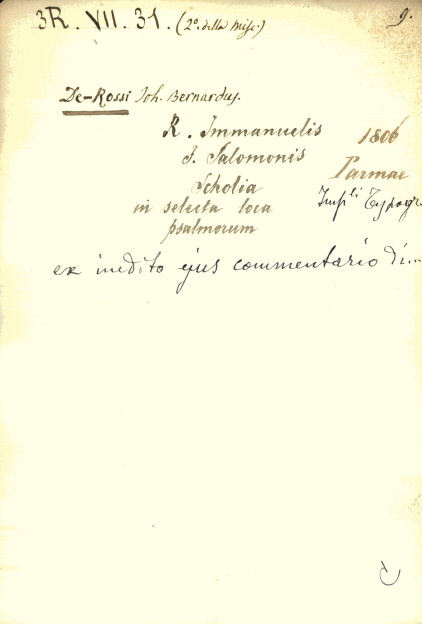 3R. VII. 31. (2º. della Misc.)
9.
De-Rossi Joh. Bernardus.
R. Immanuelis
F. Salomonis
Scholia
in selecta loca
psalmorum
1806
Parmae
Impli Typogr.
ex inedito ejus commentario di...